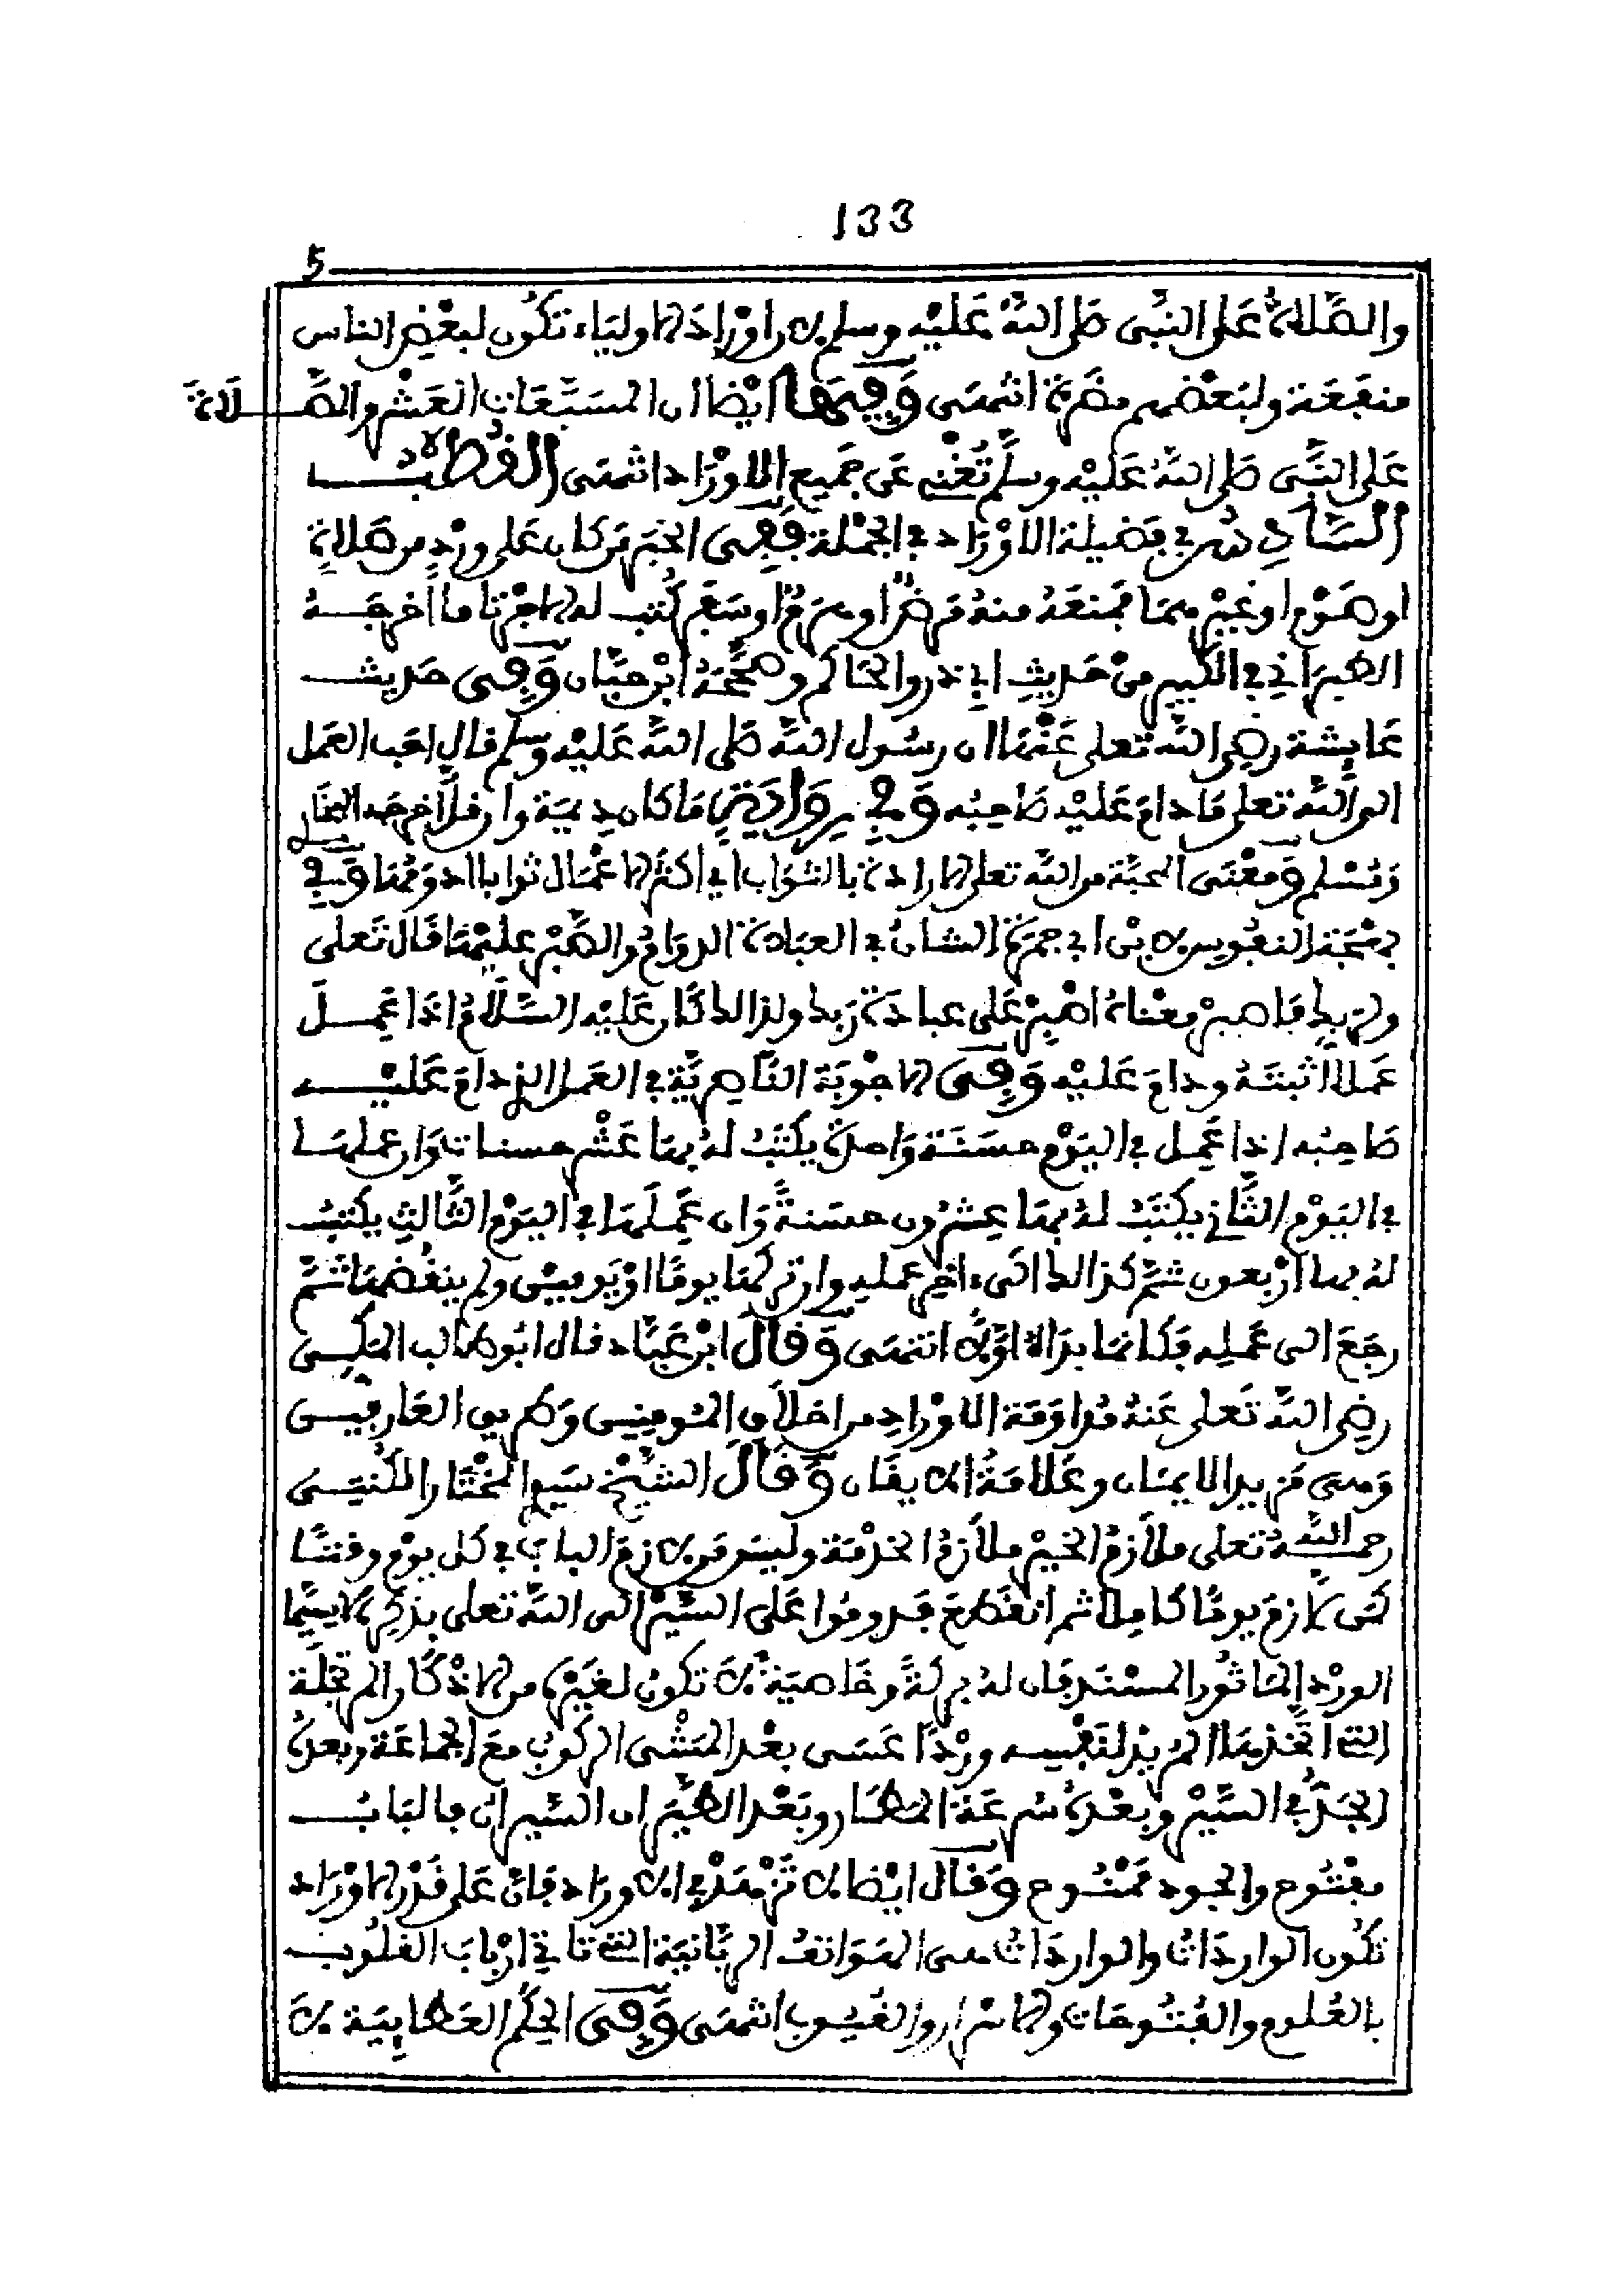 133
5
والصلاة على النبي صلى الله عليه وسلم لان اوراد الاولياء تكون لبعض الناس
منفعة ولبعضهم مضرة انتهى وفيها ايضا ان المسبعات العشر والصلاة
على النبي صلى الله عليه وسلم تغني عن جميع الاوراد انتهى المطلب
السادس في فضيلة الاوراد في الجملة ففي الخبر من كان على ورد من صلاة
او صوم او غير مما فمنعه منه مرض او هرم او سفر كتب له الاجر تاما اخرجه
الطبراني في الكبير من حديث ابي ذر والحاكم وصححه ابن حبان وفي حديث
عايشة رضي الله تعلى عنها ان رسول الله صلى الله عليه وسلم قال احب العمل
الى الله تعلى ما دام عليه صاحبه وفي رواية ما كان ديمة وان قل اخرجه البخاري
ومسلم ومعنى المحبة من الله تعلى الارادة بالثواب اي اكثر الاعمال ثوابا ادومها وفي
بهجة النفوس لابن ابي جمرة الشان في العبادة الدوام والصبر عليها قال تعلى
ولربك فاصبر معناه اصبر على عبادة ربك ولذلك كان عليه السلام اذا عمل
عملا اثبته ودام عليه وفي الاجوبة الناصرية في العمل الذي دام عليه
صاحبه اذا عمل في اليوم حسنة واحدة يكتب له بها عشر حسنات وان عملها
في اليوم الثاني يكتب له بها عشرون حسنة وان عملها في اليوم الثالث يكتب
له بها اربعون ثم كذلك الى ءاخر عمله وان تركها يوما او يومين ولم ينقضها ثم
رجع الى عمله فكانما بداه اولا انتهى وقال ابن عباد قال ابو طالب المكي
رضي الله تعلى عنه مداومة الاوراد من اخلاق المومنين وطريق العارفين
وهي مزيد الايمان وعلامة الايقان وقال الشيخ سيد المختار الكنتي
رحمه الله تعلى ملازم الخير ملازم الخدمة وليس من لازم الباب في كل يوم وقتا
كمن لازم يوما كاملا ثم انقطع فدوموا على السير الى الله تعلى بذكره لاسيما
الورد الماثور المسند فان له بركة وخاصية لا تكون لغيره من الاذكار المرتجلة
التي اتخذها المريد لنفسه وردا عسى بعد المشي الركوب مع الجماعة وبعده
الجد في السير وبعده سرعة المطار وبعد الطيران السيران فالباب
مفتوح والجود ممنوح وقال ايضا لا تزهد في الاوراد فان على قدر الاوراد
تكون الواردات والواردات هي الهواتف الربانية التي تاتي ارباب القلوب
بالعلوم والفتوحات والاسرار والغيوب انتهى وفي الحكم العطايية لا